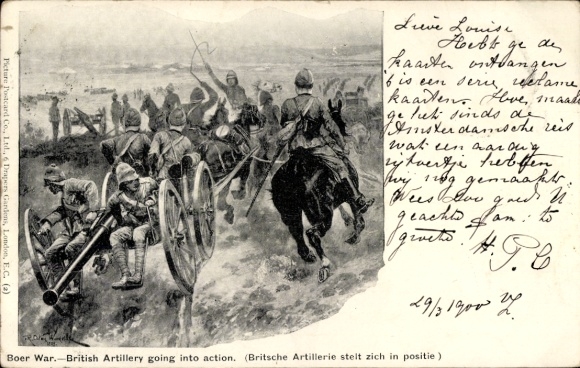 Lieve Louise
Hebt ge de
kaarten ontvangen
't is een serie reclame
kaarten. Hoe maak
ge het sinds de
Amsterdamsche reis
wat een aardig
ritvertje hebben
wij nog gemaakt.
Wees zoo goed U
geachte fam: te
groete!
H. P. C
29/3 1900
Picture Postcard Co., Ltd., 6 Drapers Gardens, London, E.C. (2)
Boer War.—British Artillery going into action. (Britsche Artillerie stelt zich in positie)